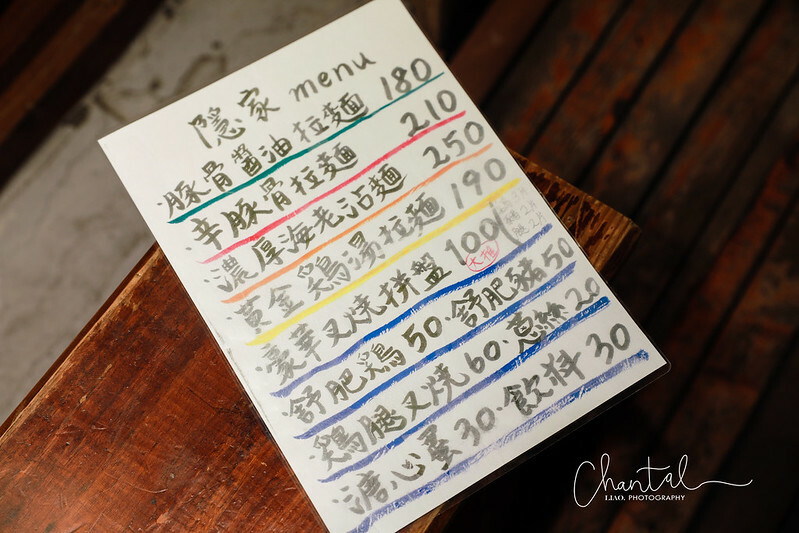 隱家 menu
·豚骨醬油拉麵 180
·辛豚骨拉麵 210
·濃厚海老沾麵 250
·黃金鶏湯拉麵 190
·豪華叉燒拼盤 100
大推
·舒肥鶏 50·舒肥豬 50
·鶏腿叉燒 60·蔥絲 20
·溏心蛋 30·飲料 30
Chantal
LIAO. PHOTOGRAPHY